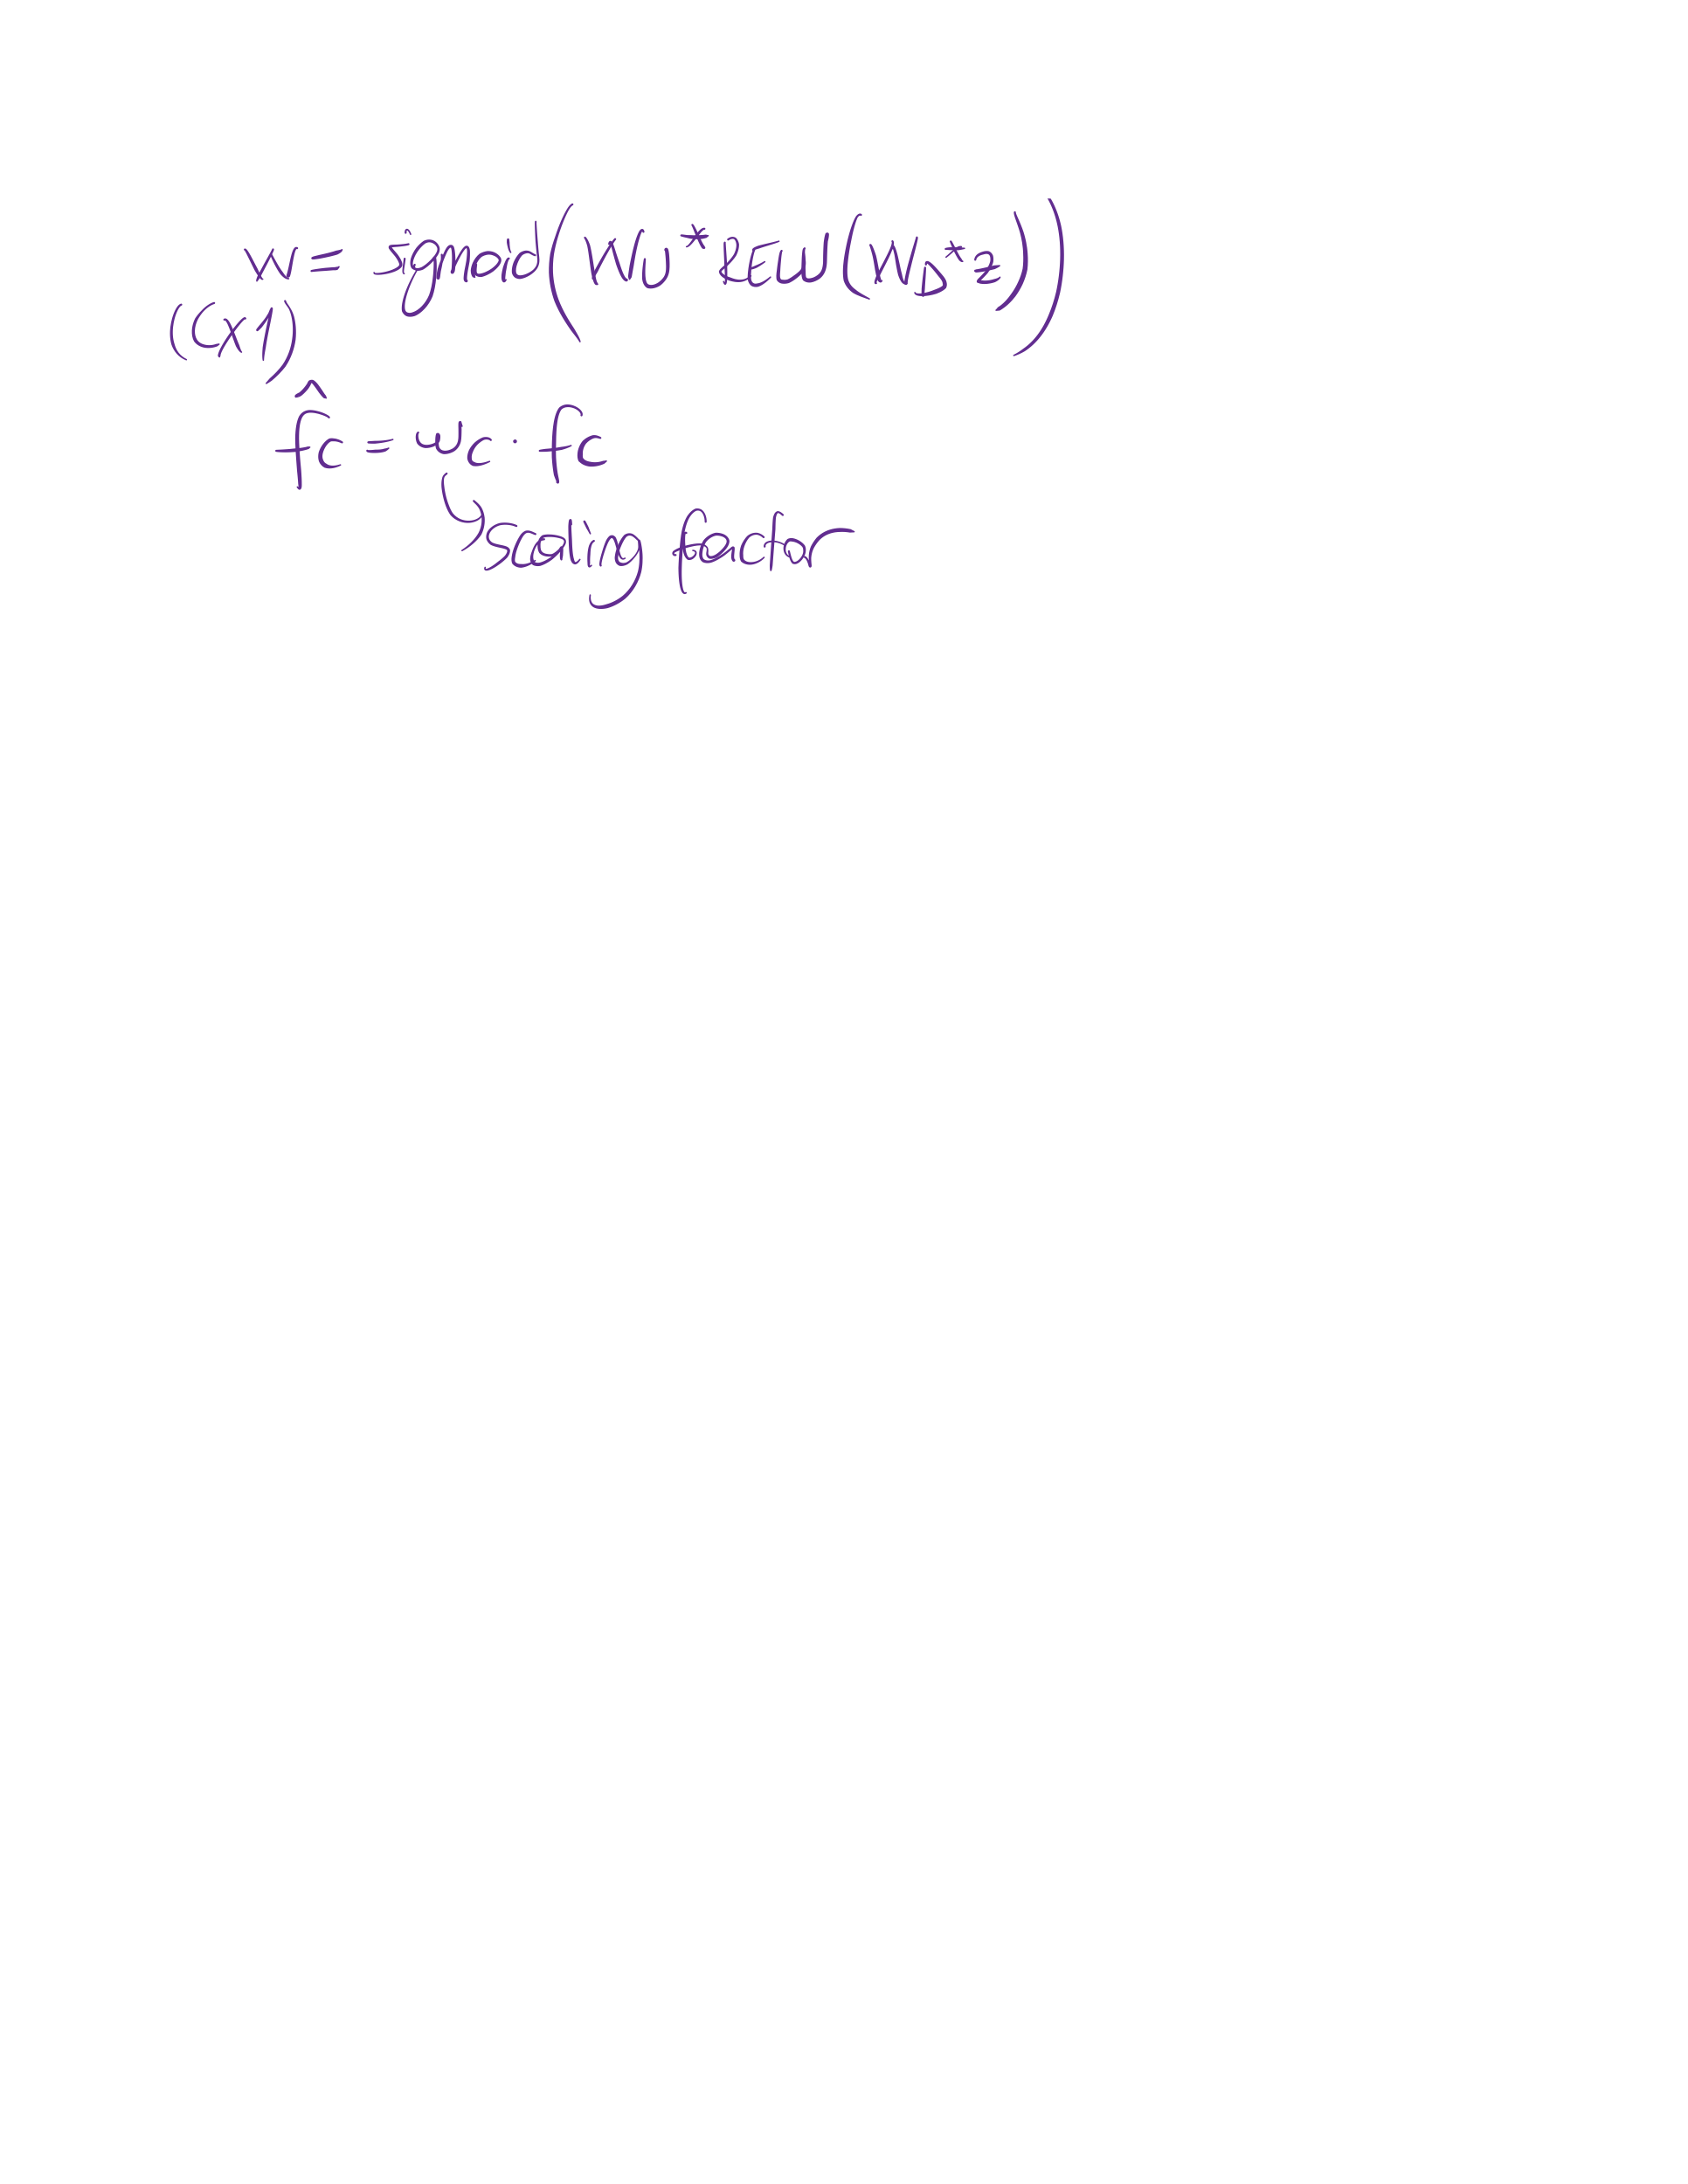 W = sigmoid(W_U * RELU(W_D * z))
(C x 1)
f̂_c = w_c · f_c
scaling factor